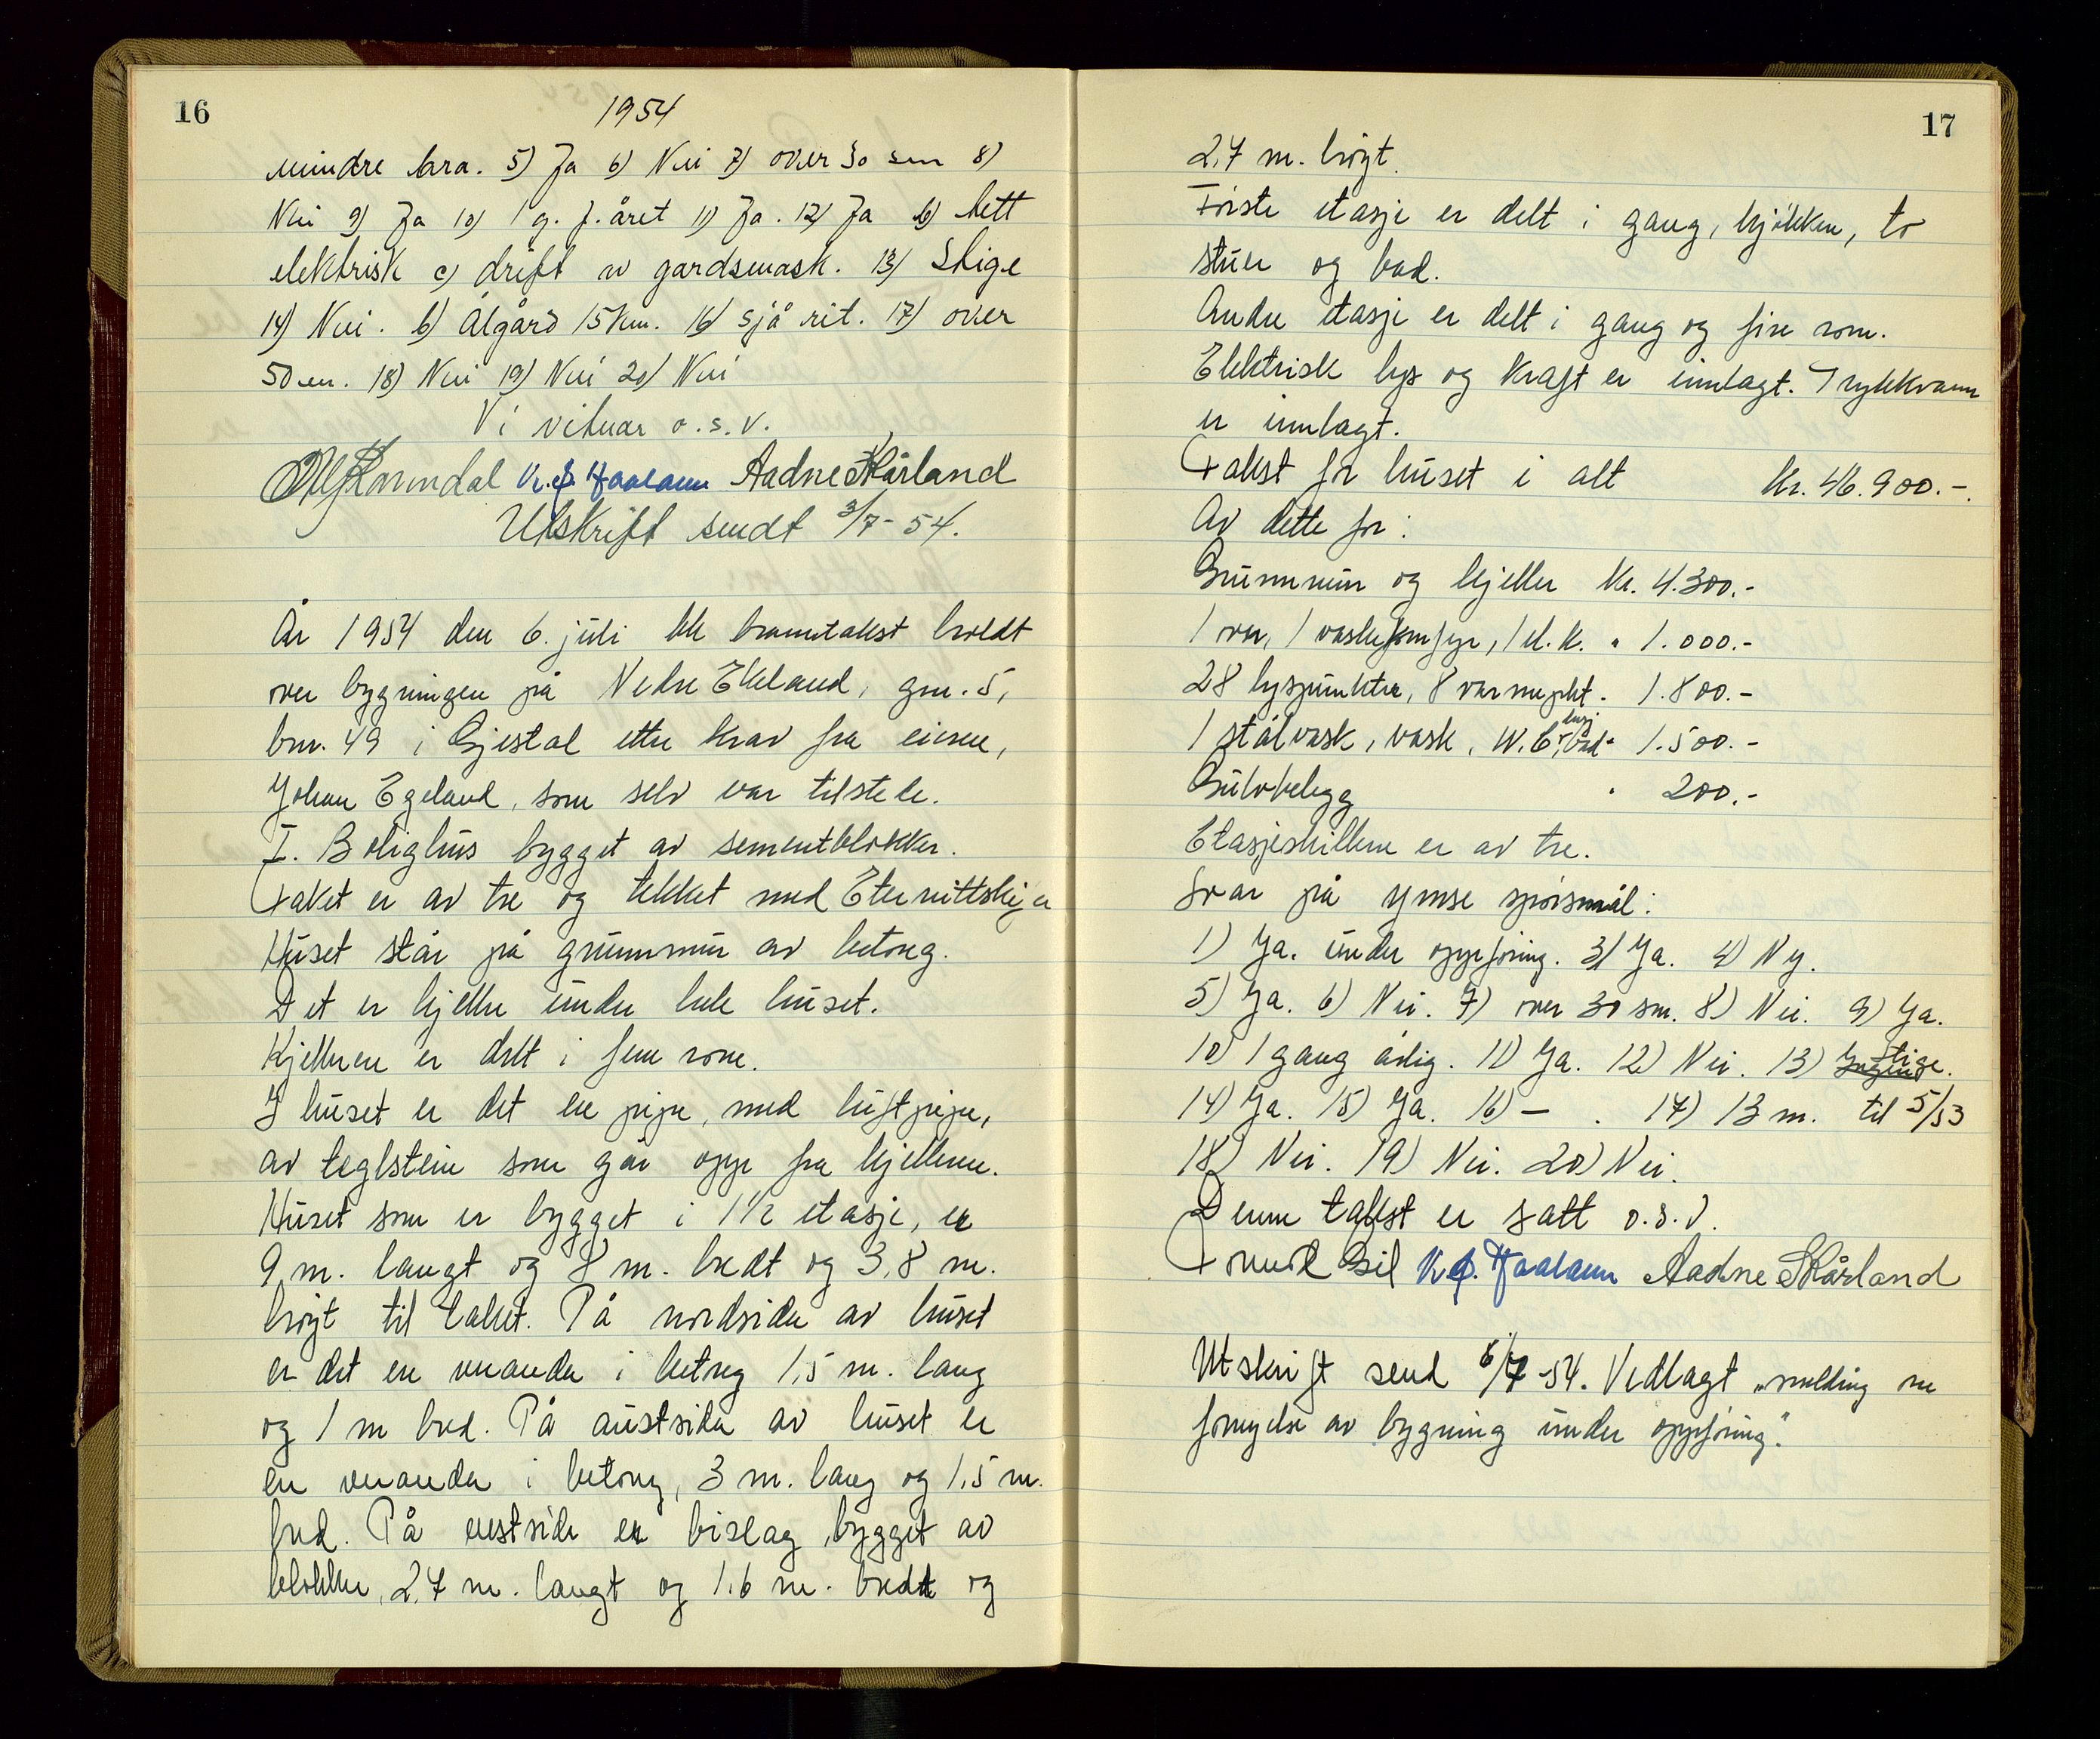 16
1954
mindre bra. 5) Ja 6) Nei 7) over 30 sm 8)
Nei 9) Ja 10) 1 g. f. året 11) Ja. 12) Ja b) lett
elektrisk c) drift av gardsmask. 13) Stige
14) Nei. b) Ålgård 15 km. 16) Sjå rit. 17) over
50 m. 18) Nei 19) Nei 20) Nei
Vi vitnar o.s.v.
K. J. Haaland Aadne Skårland
Utskrift sendt 3/7-54.
År 1954 den 6. juli ble branntakst holdt
over bygningen på Nedre Ekeland, gnr. 5,
bnr. 49 i Gjestal etter krav fra eieren,
Johan Egeland, som selv var tilstede.
I. Bolighus bygget av sementblokker.
Taket er av tre og tekket med Eternittskifer
Huset står på grunnmur av betong.
Det er kjeller under hele huset.
Kjelleren er delt i fem rom.
I huset er det en pipe, med luftpipe,
av teglstein som går opp fra kjelleren.
Huset som er bygget i 1½ etasje, er
9 m. langt og 8 m. bredt og 3,8 m.
högt til taket. På nordsiden av huset
er det en veranda i betong 1,5 m. lang
og 1 m bred. På austsiden av huset er
en veranda i betong, 3 m. lang og 1,5 m.
bred. På vestside er bislag bygget av
blokker, 2,7 m. langt og 1,6 m. bredt og
17
2,7 m. högt.
Förste etasje er delt i gang, kjökken, to
stuer og bad.
Andre etasje er delt i gang og fire rom.
Elektrisk lys og kraft er innlagt. Trykkvann
er innlagt.
Takst for huset i alt Kr. 46.900.-.
Av dette for:
Grunnmur og kjeller Kr. 4.300.-
1 ovn, 1 vaskekomfyr, 1 el. k. " 1.000.-
28 lyspunkter, 8 varmepkt. 1.800.-
1 stålvask, vask, W.C., bad " 1.500.-
Gulvbelegg " 200.-
Etasjeskillene er av tre.
Svar på ymse spörsmål:
1) Ja. under oppföring. 3) Ja. 4) Ny.
5) Ja. 6) Nei. 7) over 30 sm. 8) Nei. 9) Ja.
10) 1 gang årlig. 11) Ja. 12) Nei. 13) Stige.
14) Ja. 15) Ja. 16) — . 17) 13 m. til 5/53
18) Nei. 19) Nei. 20) Nei.
Denne takst er satt o.s.v.
Tomod Gil K. J. Haaland Aadne Skårland
Utskrift send 6/7-54. Vedlagt „melding om
fornyelse av bygning under oppföring."